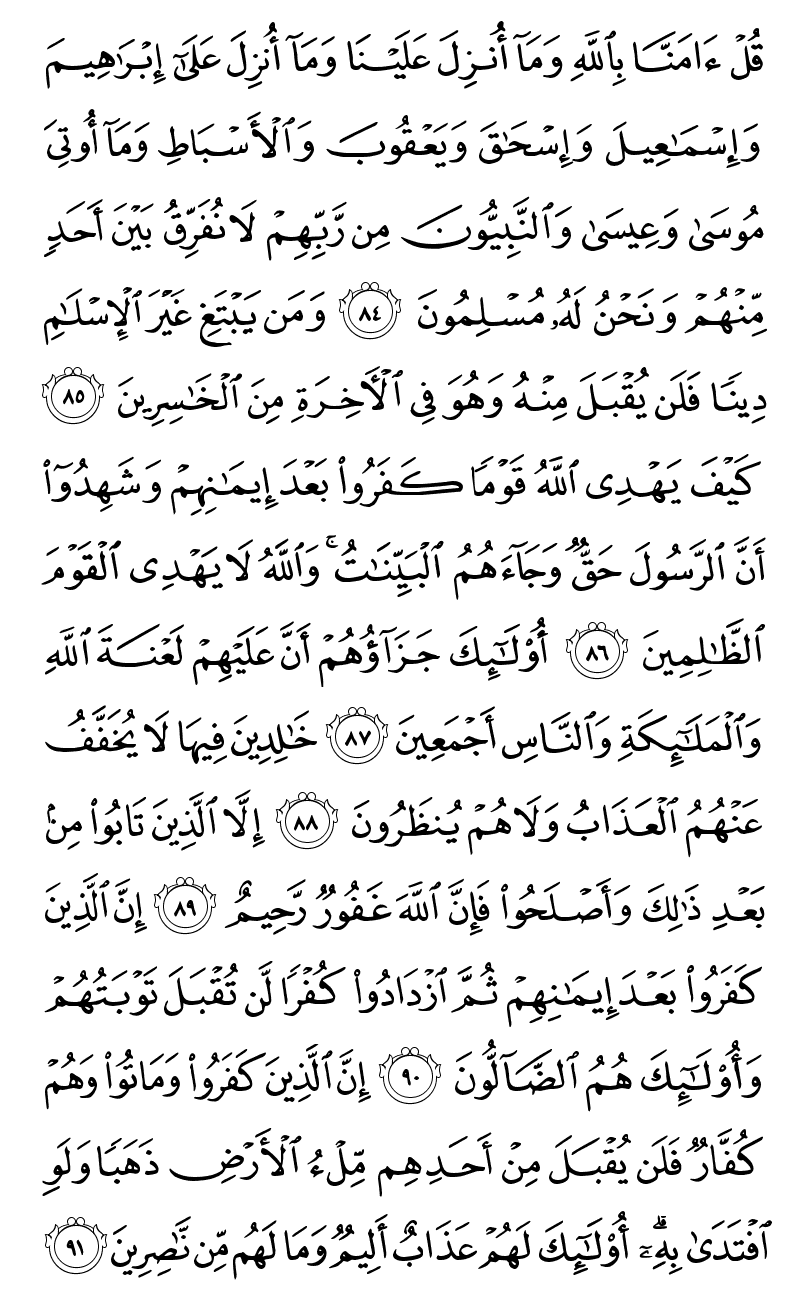 قُلۡ ءَامَنَّا بِٱللَّهِ وَمَآ أُنزِلَ عَلَيۡنَا وَمَآ أُنزِلَ عَلَىٰٓ إِبۡرَٰهِيمَ
وَإِسۡمَٰعِيلَ وَإِسۡحَٰقَ وَيَعۡقُوبَ وَٱلۡأَسۡبَاطِ وَمَآ أُوتِيَ
مُوسَىٰ وَعِيسَىٰ وَٱلنَّبِيُّونَ مِن رَّبِّهِمۡ لَا نُفَرِّقُ بَيۡنَ أَحَدٖ
مِّنۡهُمۡ وَنَحۡنُ لَهُۥ مُسۡلِمُونَ ٨٤ وَمَن يَبۡتَغِ غَيۡرَ ٱلۡإِسۡلَٰمِ
دِينٗا فَلَن يُقۡبَلَ مِنۡهُ وَهُوَ فِي ٱلۡأٓخِرَةِ مِنَ ٱلۡخَٰسِرِينَ ٨٥
كَيۡفَ يَهۡدِي ٱللَّهُ قَوۡمٗا كَفَرُواْ بَعۡدَ إِيمَٰنِهِمۡ وَشَهِدُوٓاْ
أَنَّ ٱلرَّسُولَ حَقّٞ وَجَآءَهُمُ ٱلۡبَيِّنَٰتُۚ وَٱللَّهُ لَا يَهۡدِي ٱلۡقَوۡمَ
ٱلظَّٰلِمِينَ ٨٦ أُوْلَٰٓئِكَ جَزَآؤُهُمۡ أَنَّ عَلَيۡهِمۡ لَعۡنَةَ ٱللَّهِ
وَٱلۡمَلَٰٓئِكَةِ وَٱلنَّاسِ أَجۡمَعِينَ ٨٧ خَٰلِدِينَ فِيهَا لَا يُخَفَّفُ
عَنۡهُمُ ٱلۡعَذَابُ وَلَا هُمۡ يُنظَرُونَ ٨٨ إِلَّا ٱلَّذِينَ تَابُواْ مِنۢ
بَعۡدِ ذَٰلِكَ وَأَصۡلَحُواْ فَإِنَّ ٱللَّهَ غَفُورٞ رَّحِيمٌ ٨٩ إِنَّ ٱلَّذِينَ
كَفَرُواْ بَعۡدَ إِيمَٰنِهِمۡ ثُمَّ ٱزۡدَادُواْ كُفۡرٗا لَّن تُقۡبَلَ تَوۡبَتُهُمۡ
وَأُوْلَٰٓئِكَ هُمُ ٱلضَّآلُّونَ ٩٠ إِنَّ ٱلَّذِينَ كَفَرُواْ وَمَاتُواْ وَهُمۡ
كُفَّارٞ فَلَن يُقۡبَلَ مِنۡ أَحَدِهِم مِّلۡءُ ٱلۡأَرۡضِ ذَهَبٗا وَلَوِ
ٱفۡتَدَىٰ بِهِۦٓۗ أُوْلَٰٓئِكَ لَهُمۡ عَذَابٌ أَلِيمٞ وَمَا لَهُم مِّن نَّٰصِرِينَ ٩١